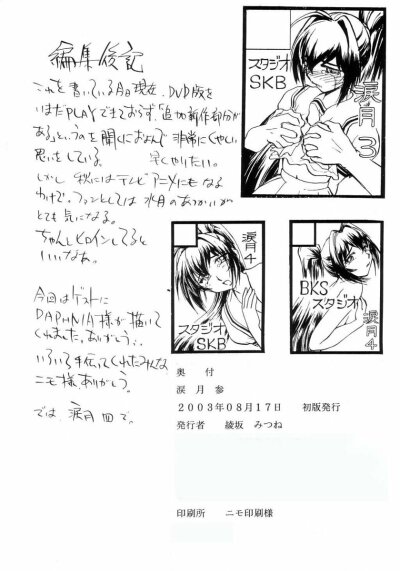 編集後記
これを書いている今日現在、DVD版を
いまだPLAYできておらず、「追加新作部分が
ある」というのを聞くにおよんで非常にくやしい
思いをしている。 早くやりたい。
しかし秋にはテレビアニメにもなる
わけで。ファンとしては水月のあつかいが
とても気になる。
ちゃんとヒロインしてると
いいなぁ。
今回はゲストに
DAPHNIA様が描いて
くれました。ありがとう。
いろいろ手伝ってくれたみんな
ニモ様ありがとう。
では、涙月四で。
スタジオ
SKB
涙月3
涙月4
スタジオ
SKB
BKS
スタジオ
涙月4
奥 付
涙 月 参
2003年08月17日 初版発行
発行者 綾坂 みつね
印刷所 ニモ印刷様